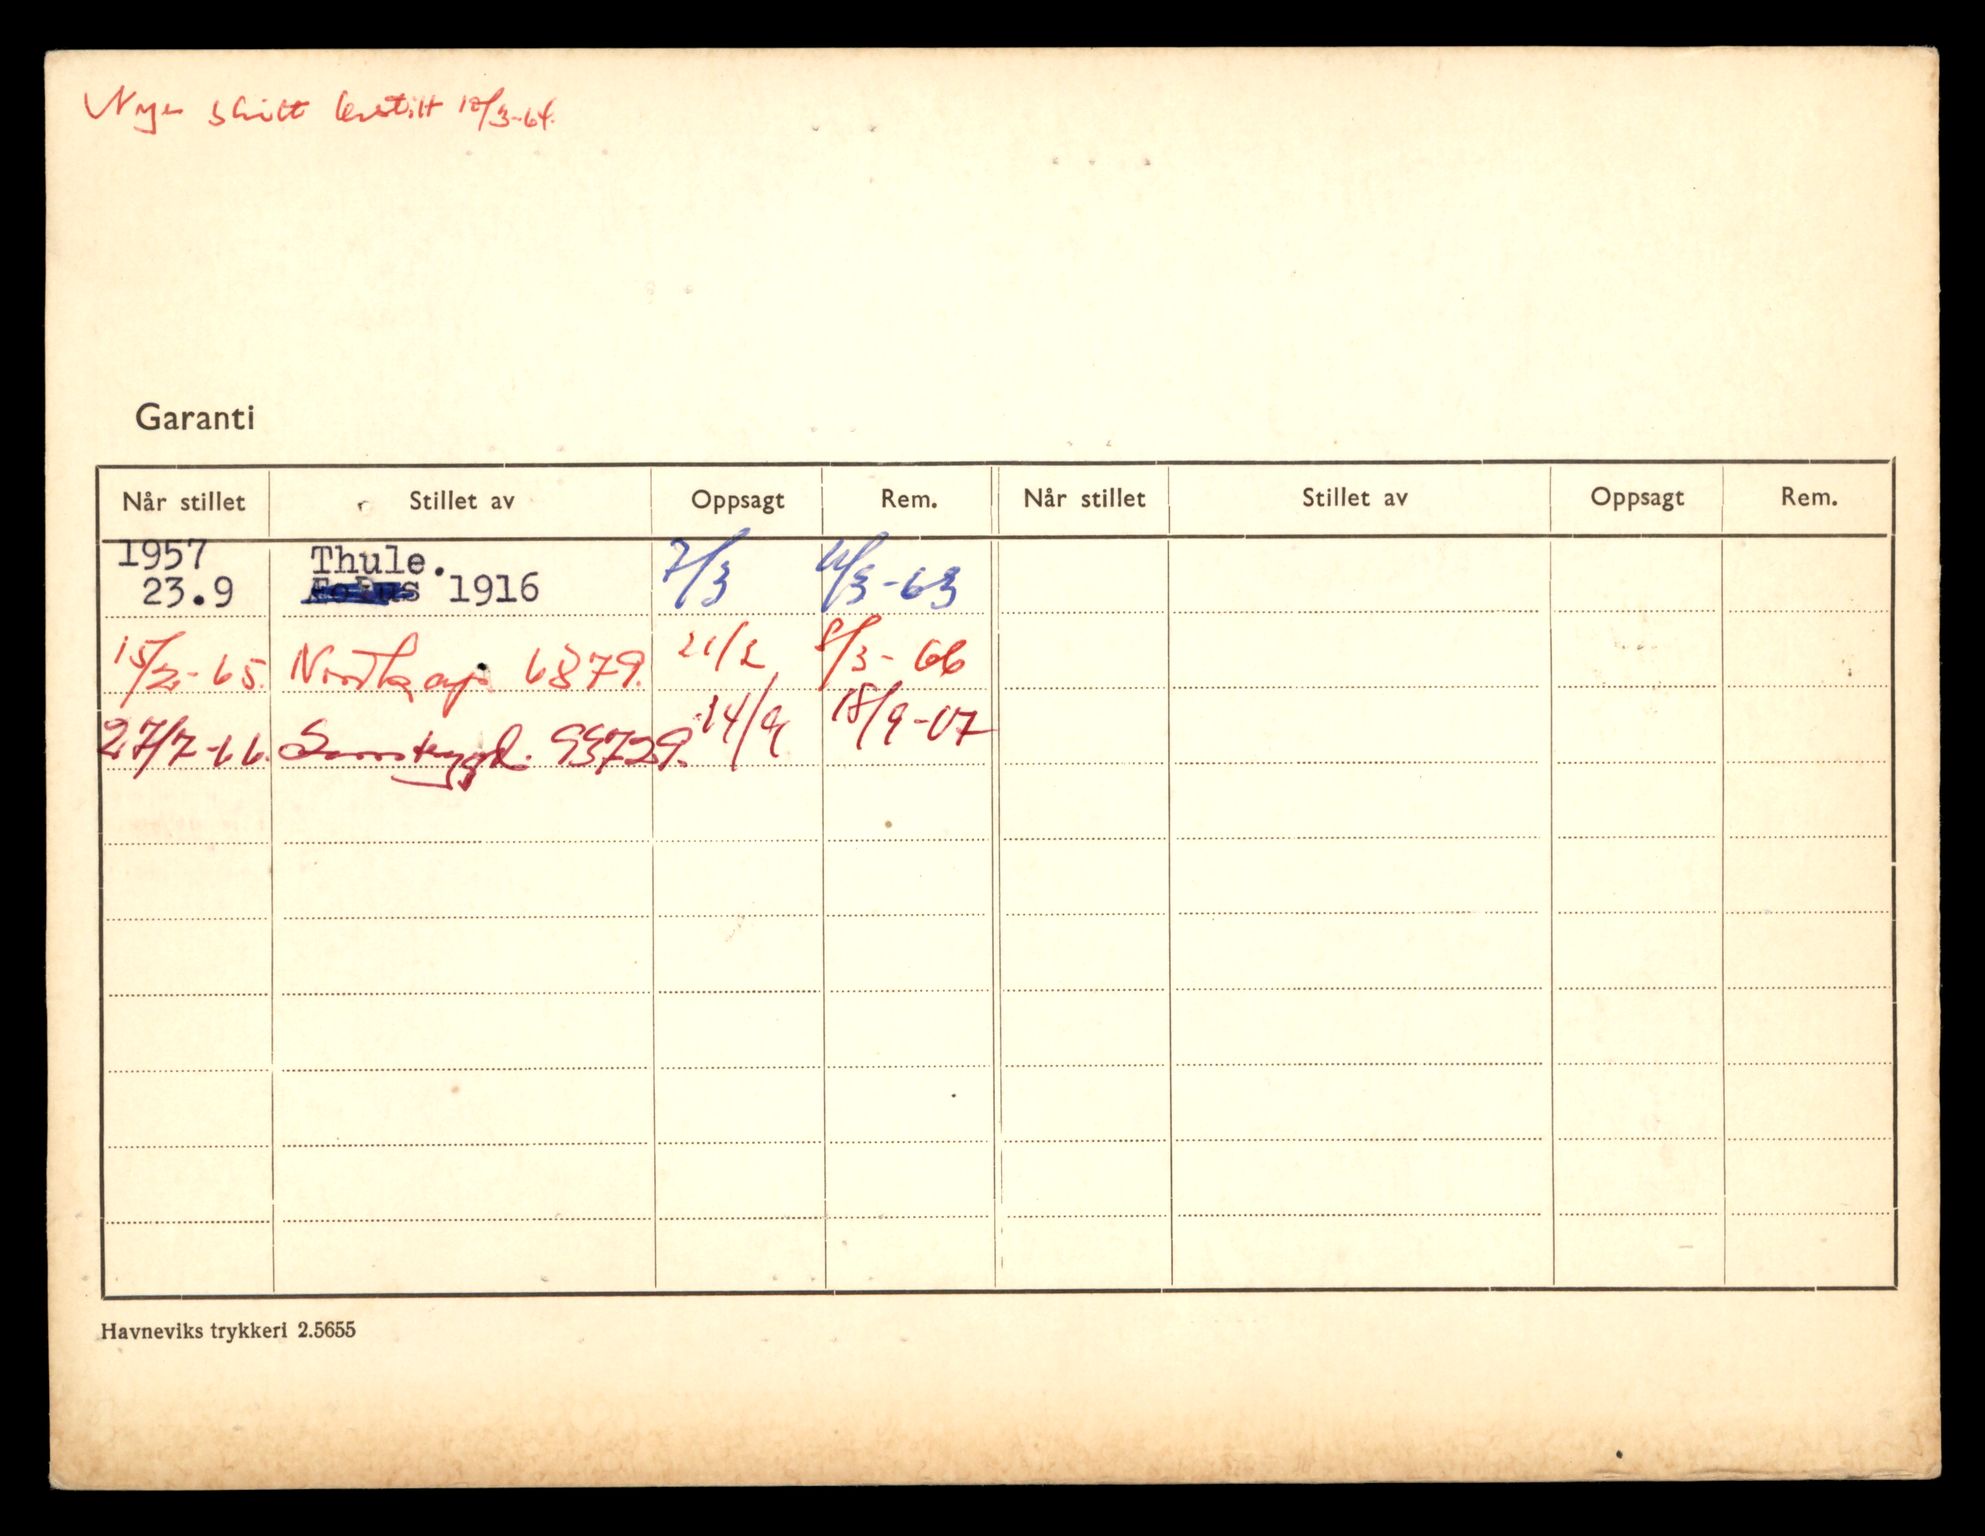 Nye skilt bestilt 12/3-64.
Garanti
Når stillet Stillet av Oppsagt Rem. Når stillet Stillet av Oppsagt Rem.
1957 Thule.
23.9 1916 7/3 4/3-63
15/2-65. Nordkap 6879. 21/2 8/3-66
27/7-66. Samtrygd. 93729. 14/9 18/9-67
Havneviks trykkeri 2.5655